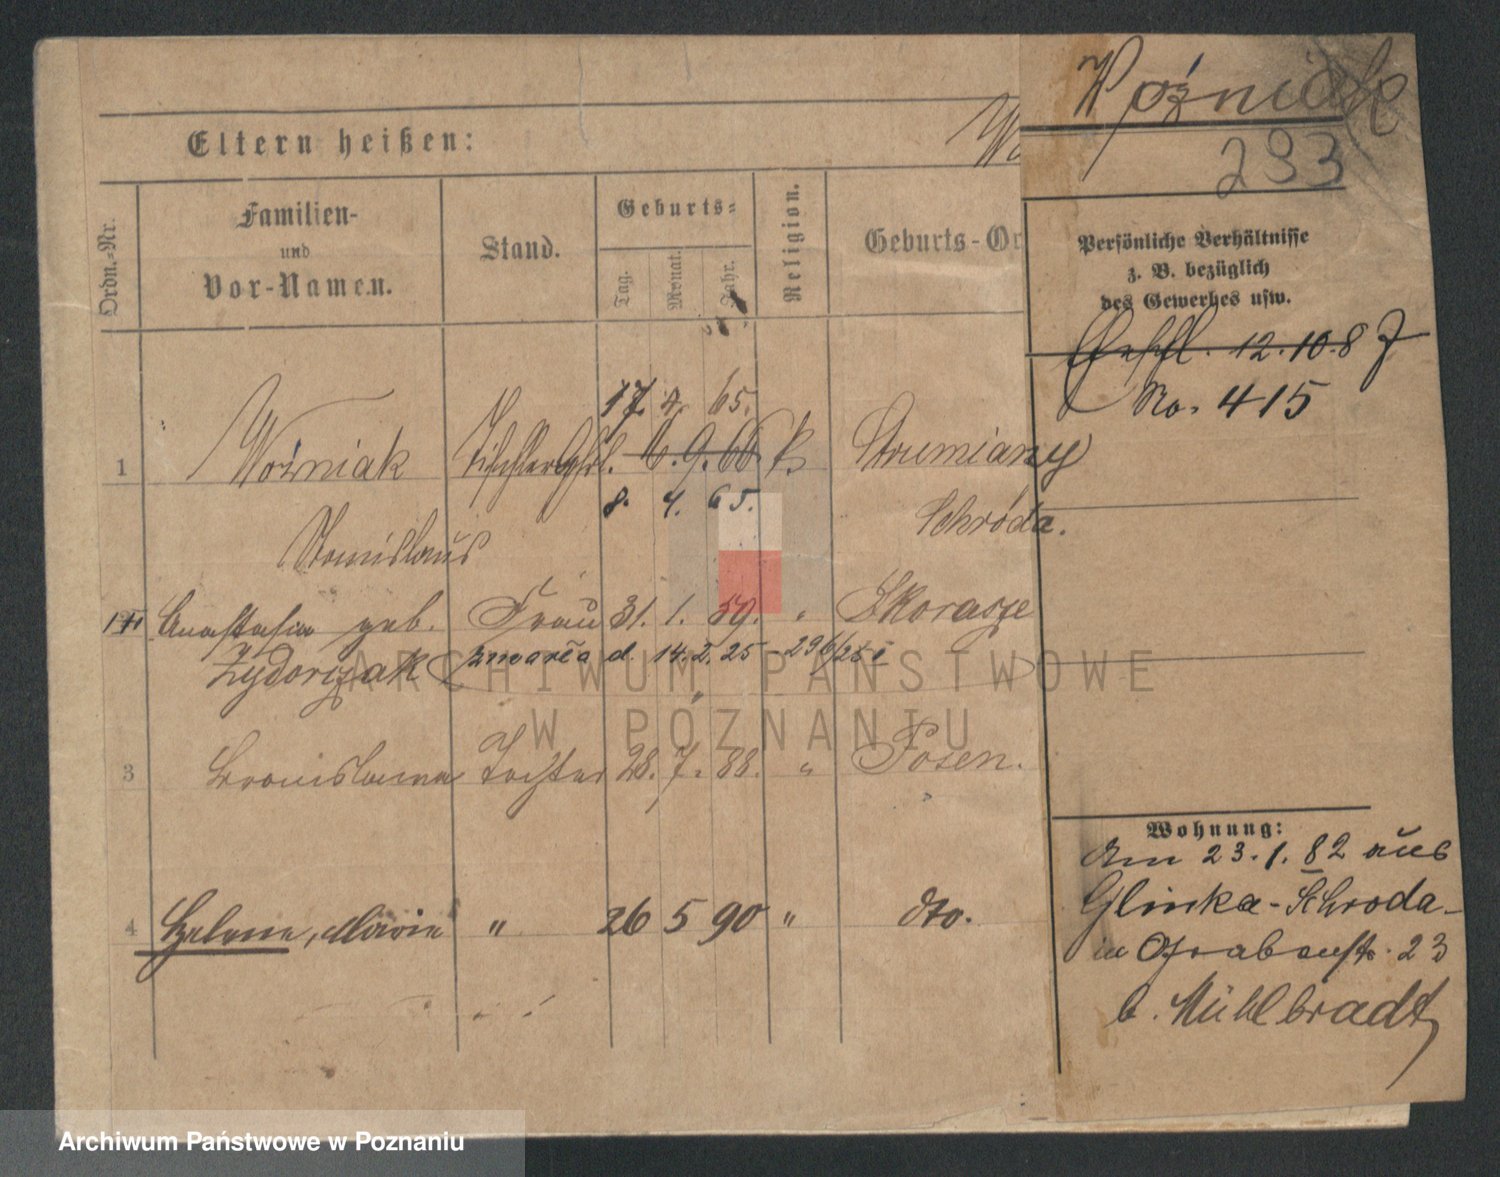 Woźniak
293
Eltern heißen:
Ordn.-Nr.
Familien-
und
Vor-Namen.
Stand.
Geburts-
Tag.
Monat.
Jahr.
Religion.
Geburts-Or
Persönliche Verhältnisse
z. B. bezüglich
des Gewerbes usw.
12.10.87
No. 415
17. 4. 65.
1 Woźniak Tischlerges. 16.9.66 k. Strumiany
8. 4. 65.
Schroda.
Stanislaus
Anastasia geb. Frau 31. 1. 59. " Skorasze
Zydorczak zmarła d. 14. I. 25 - 296/25 I
3 Bronislawa Tochter 28. 7. 88. " Posen.
4 Helene, Marie " 26 5 90 " dto.
Wohnung:
Am 23.1.82 aus
Glinka-Schroda
in Grabenstr. 23
b. Mühlbradt
ARCHIWUM PAŃSTWOWE
W POZNANIU
Archiwum Państwowe w Poznaniu